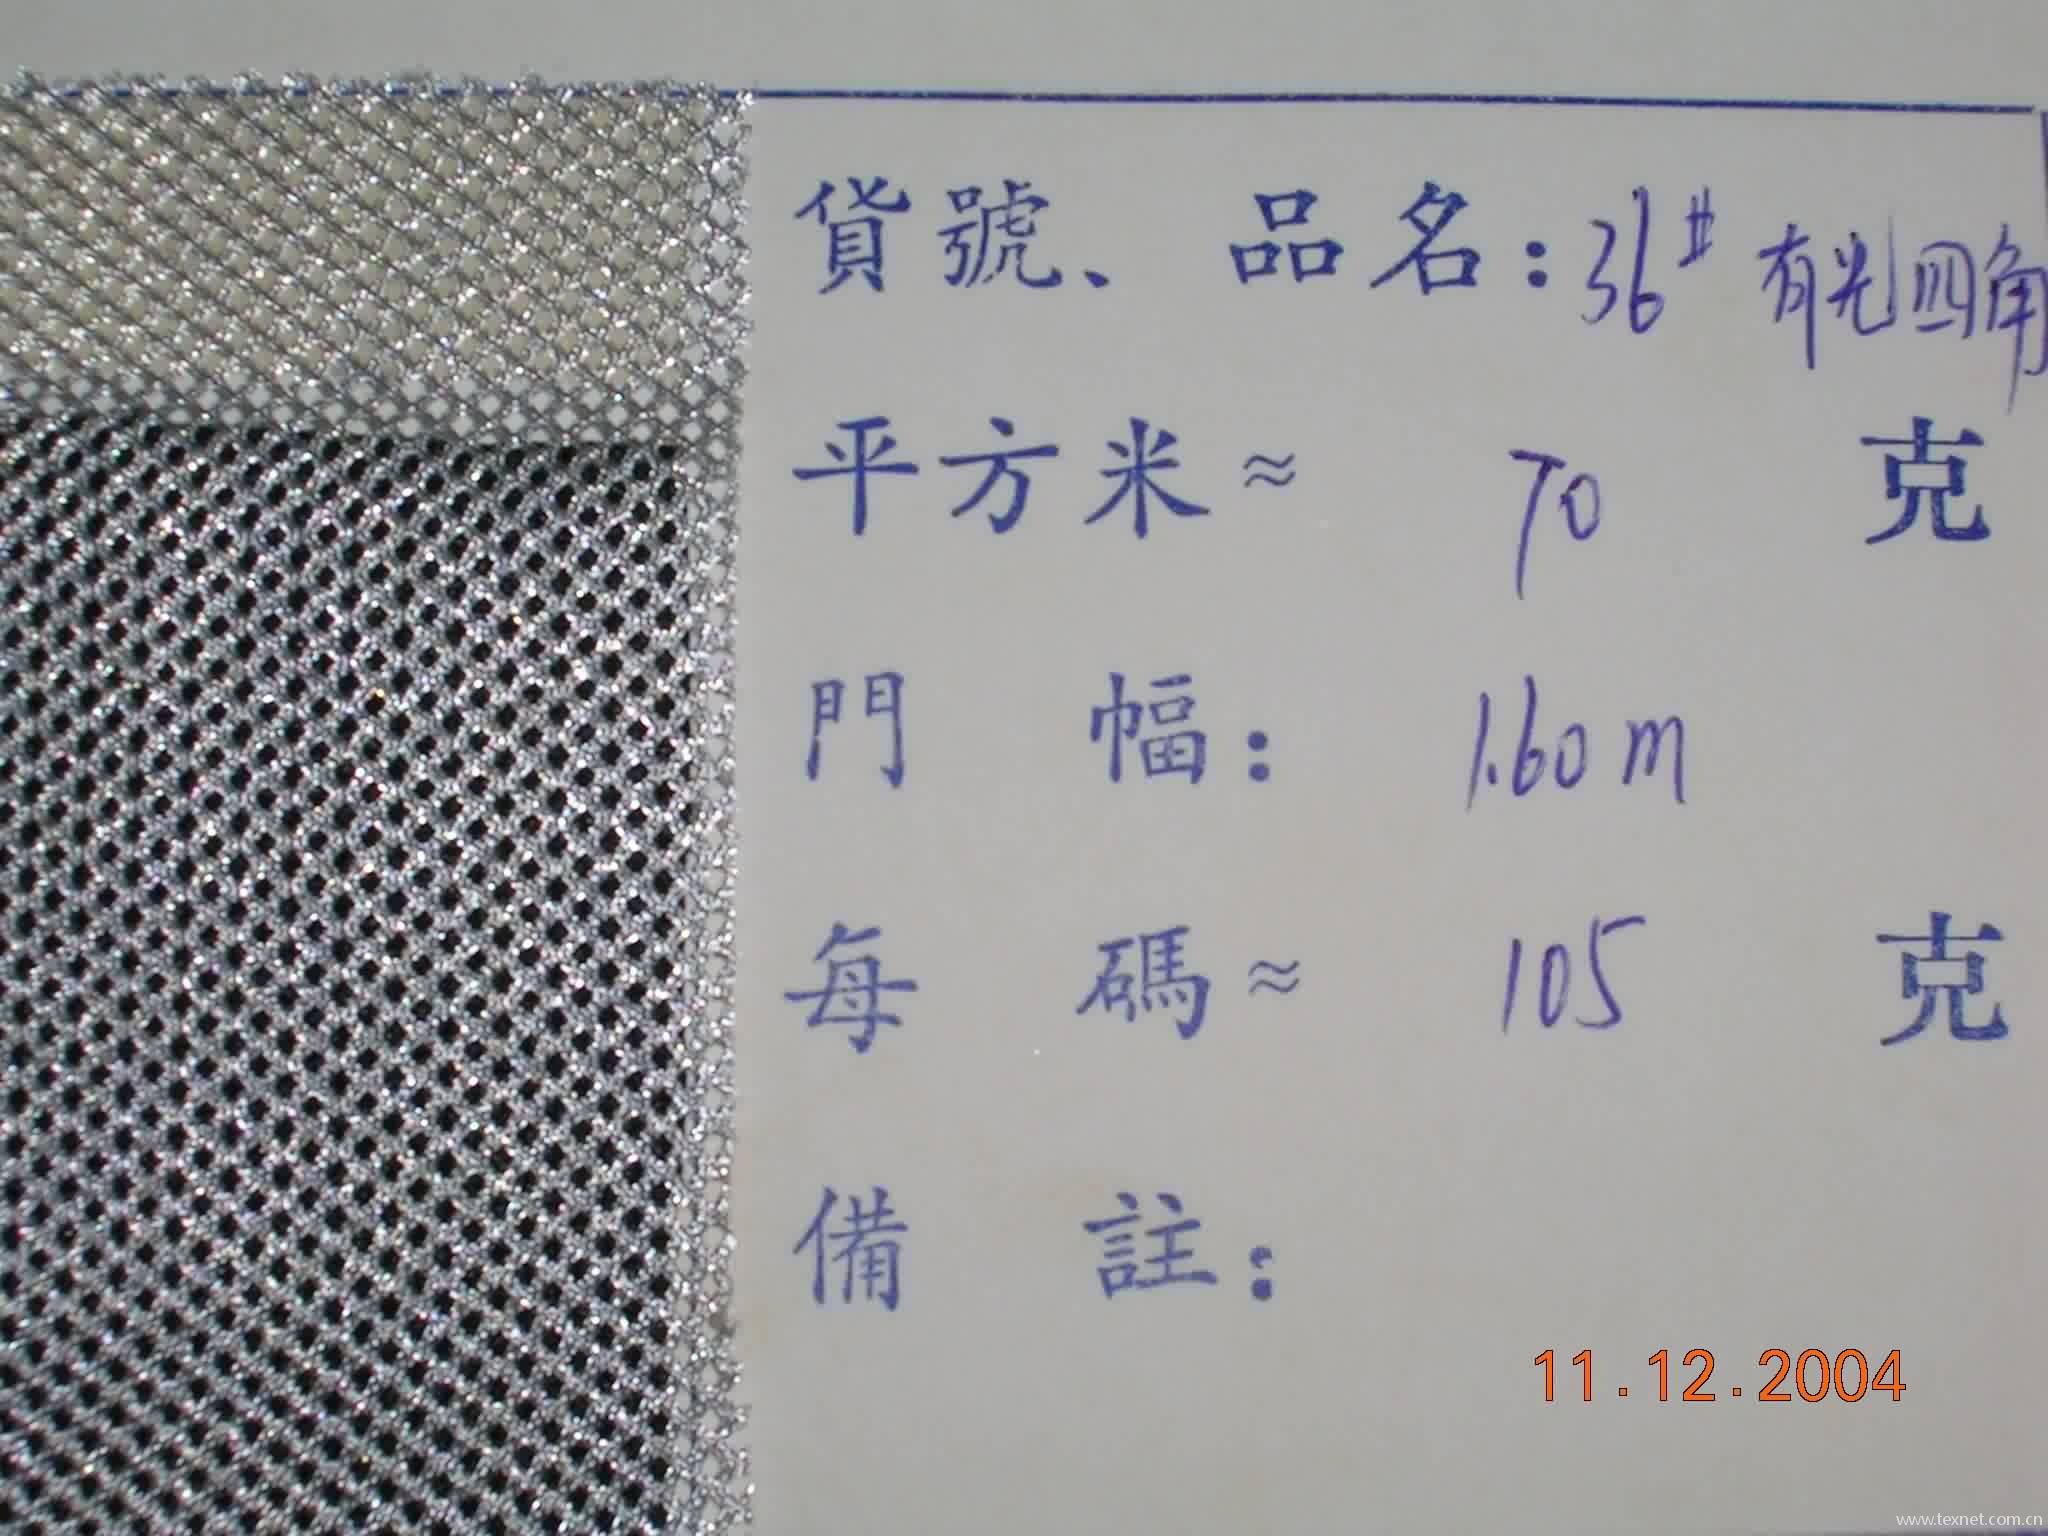 貨號、品名:36# 有光四角
平方米≈ 70 克
門幅: 1.60m
每碼≈ 105 克
備註:
11.12.2004
www.texnet.com.cn